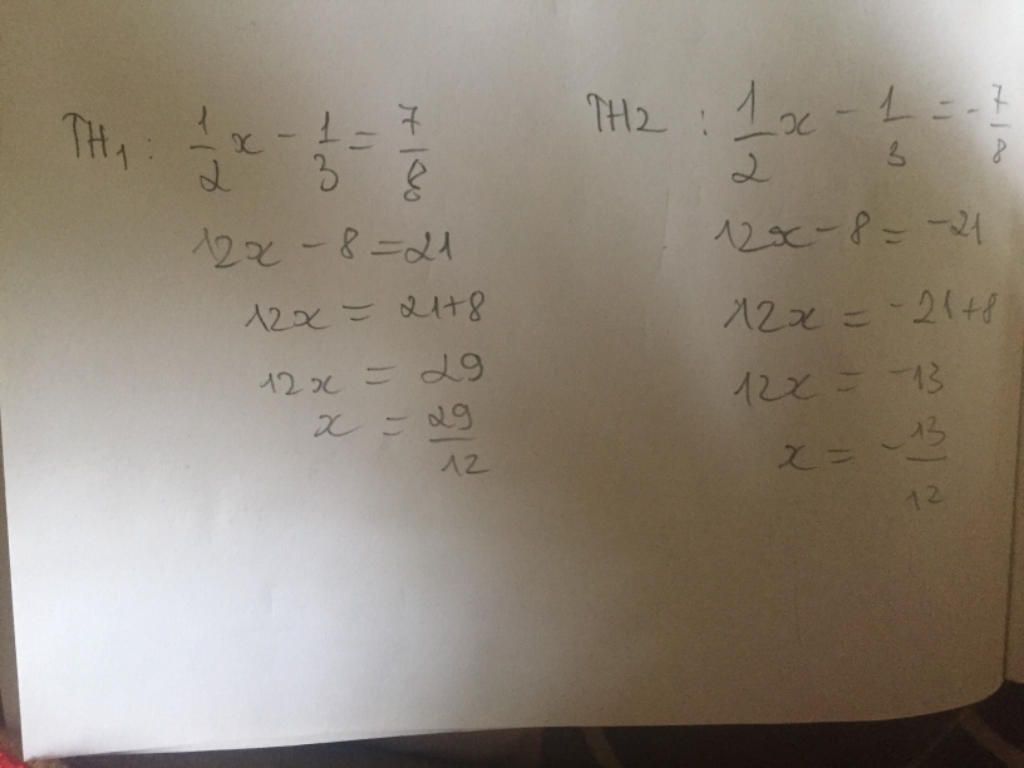 TH1: 1/2 x - 1/3 = 7/8
12x - 8 = 21
12x = 21+8
12x = 29
x = 29/12
TH2 : 1/2 x - 1/3 = -7/8
12x - 8 = -21
12x = -21+8
12x = -13
x = -13/12